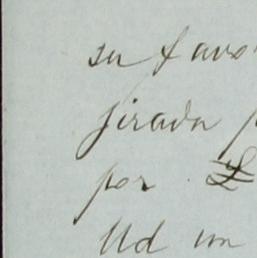 su favor
jirada p
por £
Ud un